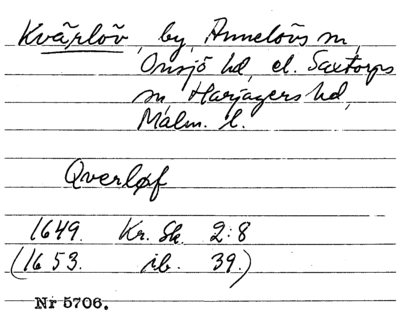 Kvärlöv, by, Annelövs sn,
Onsjö hd, el. Saxtorps
sn, Harjagers hd,
Malm. l.
Qverløf
1649. Kr. Sk. 2:8
(1653. ib. 39.)
Nr 5706.